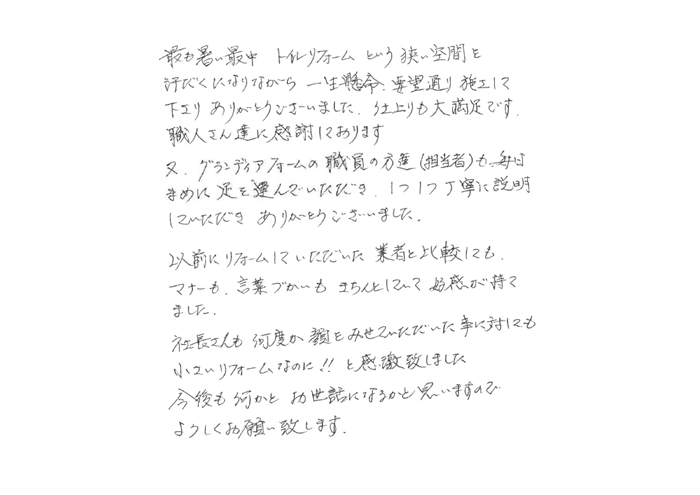 最も暑い最中 トイレリフォーム という 狭い空間を
汗だくになりながら 一生懸命、要望通り 施工して
下さり ありがとうございました。仕上りも大満足です。
職人さん達に感謝しております
又、グランディアフォームの職員の方達(担当者)も、毎日
まめに 足を運んでいただき、1つ1つ丁寧に説明
していただき ありがとうございました。
以前にリフォームしていただいた 業者と比較しても、
マナーも、言葉づかいも きちんとしていて 好感が持て
ました。
社長さんも 何度か 顔をみせていただいた事に対しても
小さいリフォームなのに!! と感激致しました
今後も何かと お世話になるかと思いますので
よろしくお願い致します。